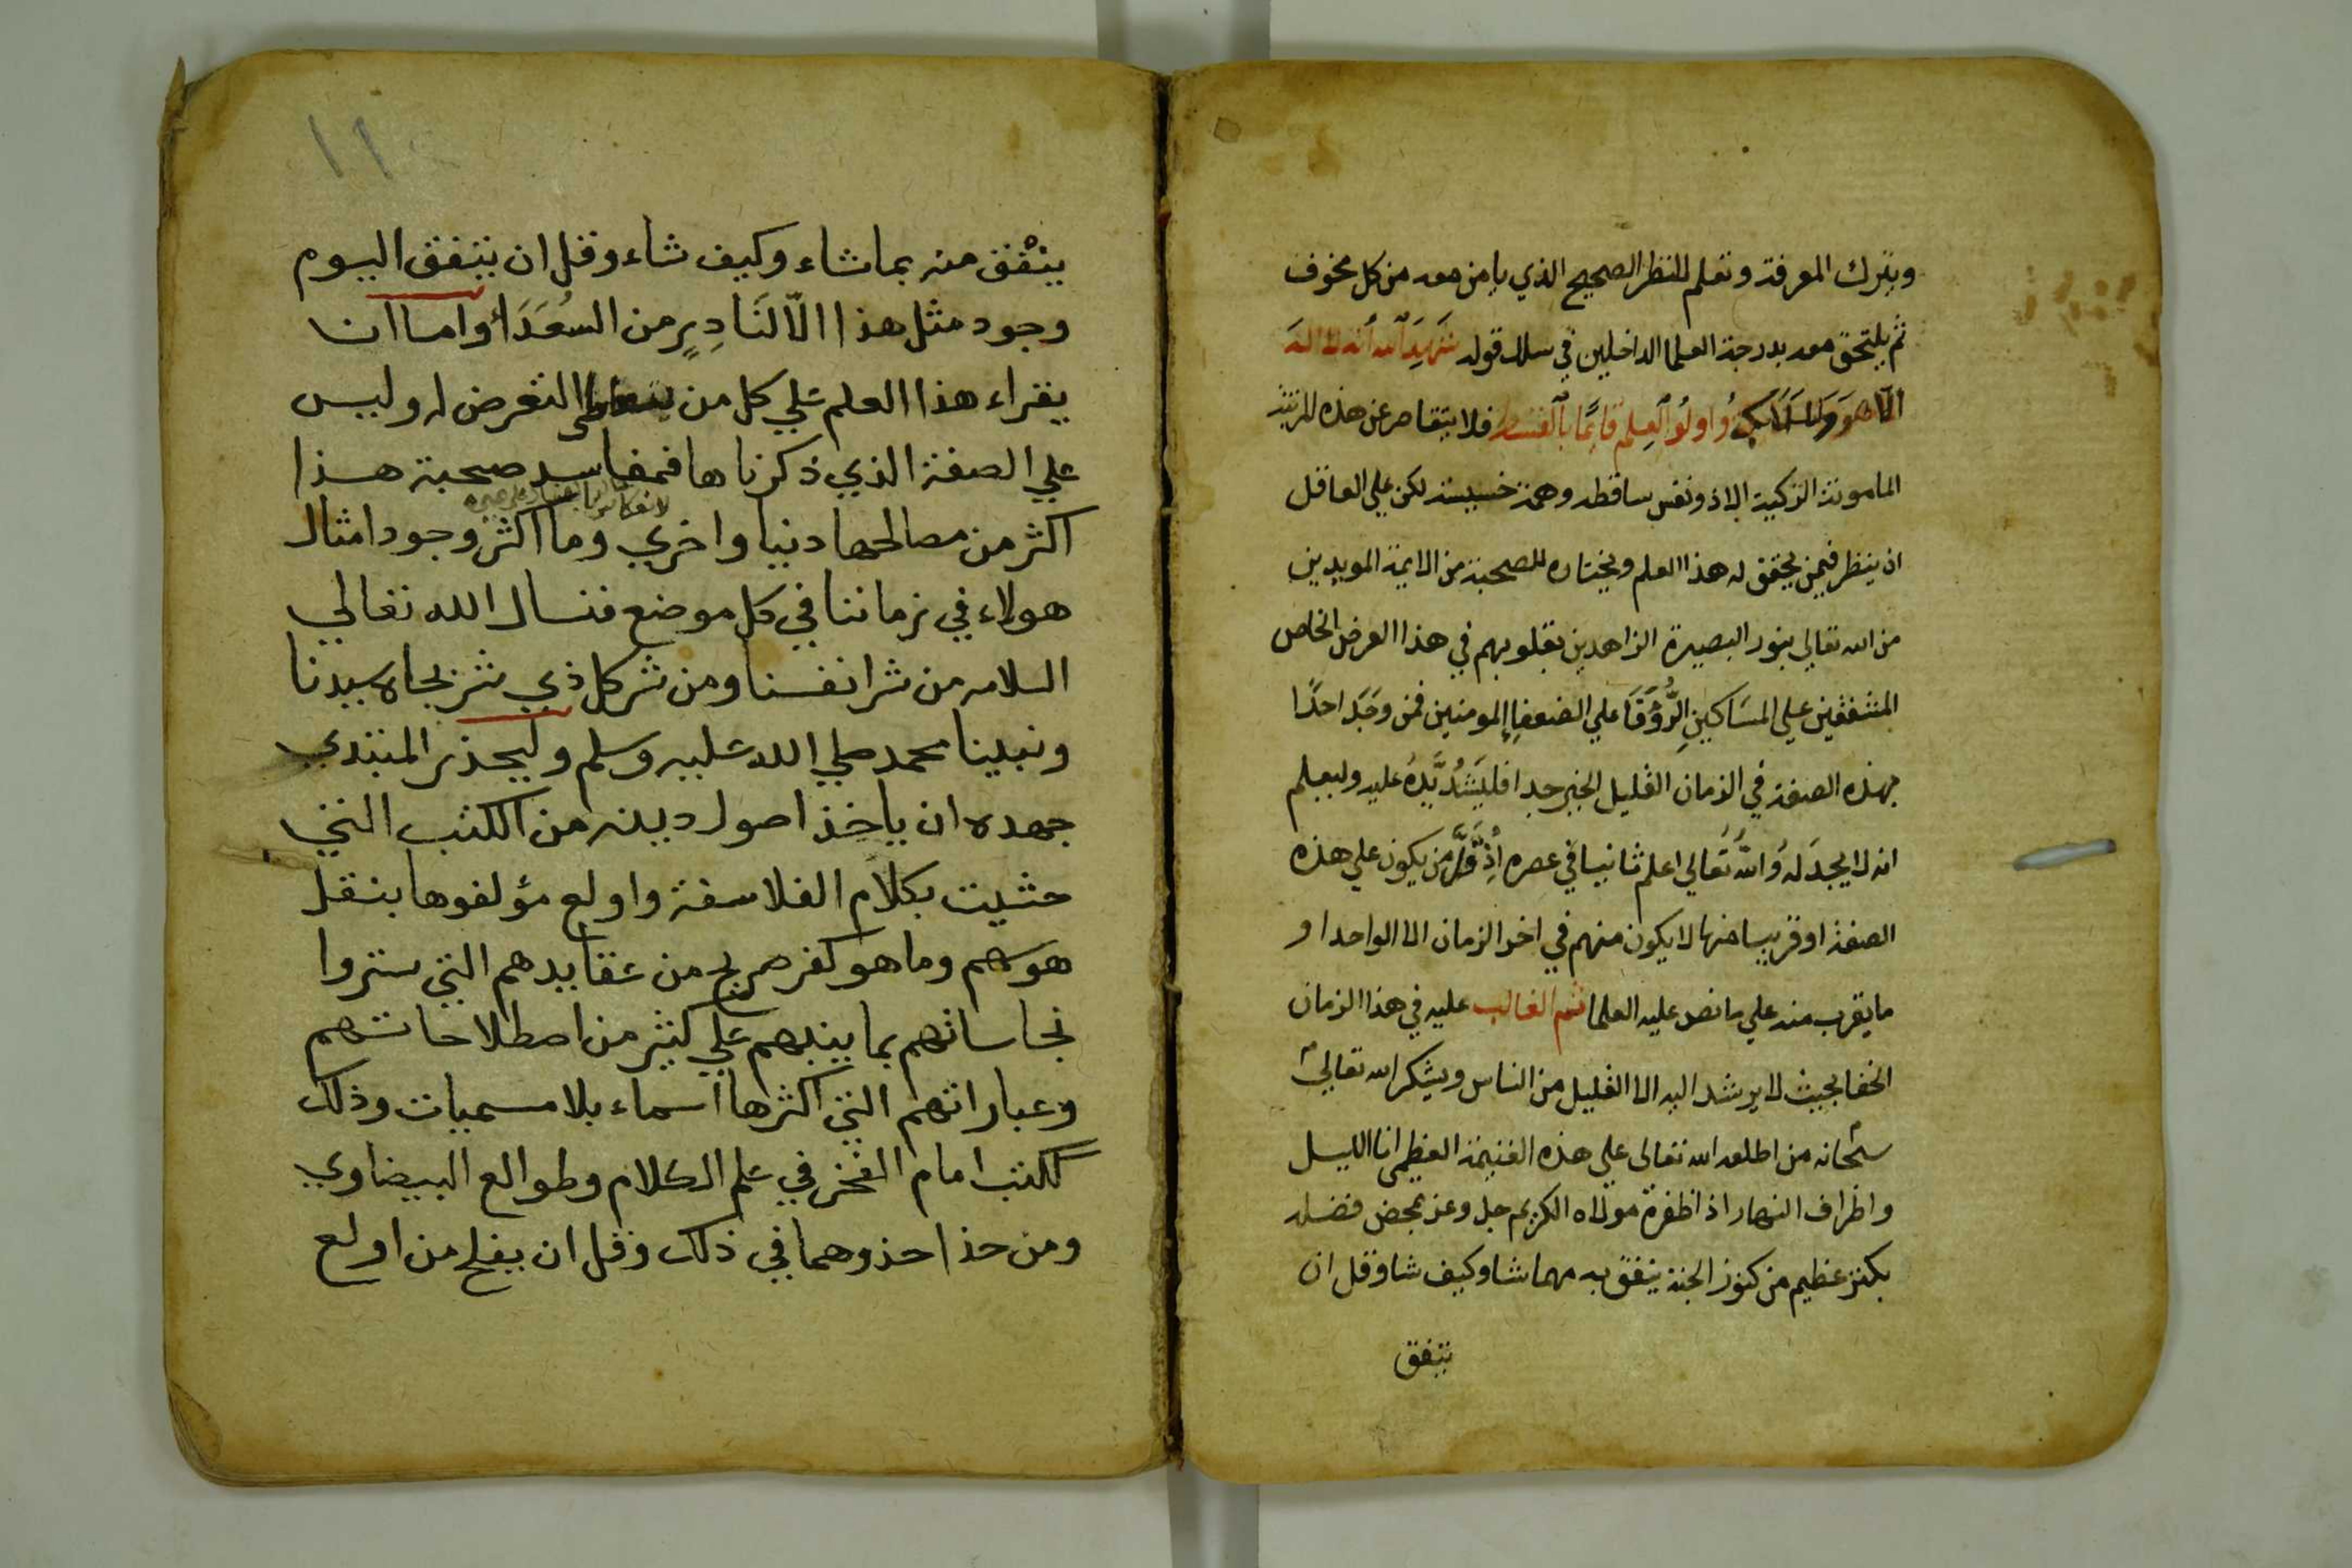 ويترك المعرفة وتعلم للنظر الصحيح الذي يامن معه من كل مخوف
ثم يلتحق معه بدرجة العلما الداخلين في سلك قوله شَهِدَ ٱلله أنه لا الهَ
الّا هوَ وَالمَلَائكةُ وَاولُو ٱلعِلم قَايِمًا بٱلقسط فلا يتقاصر عن هذه المرتبة
المامونة الزكية الا ذو نفس ساقطه وهمة خسيسة لكن علي العاقل
ان ينظر فيمن يحقق له هذا العلم ويختاره للصحبة من الايمة المويدين
من الله تعالي بنور البصيرة الزاهدين بقلوبهم في هذا العرض الخاص
المشفقين علي المسَاكينِ الرُّؤَفَا علي الضعفاِ المومنين فمن وجَدَ احدًا
بهذه الصفة في الزمان القليل الخير جدا فليَشُدَّ يَدهُ عليه وليعلم
انه لا يجدَ لهُ وَاللهُ تَعَالي اعلم ثانيا في عصره إذْ مَن يكون علي هذه
الصفة او قريبا منها لا يكون منهم في اخر الزمان الا الواحد او
ما يقرب منه علي ما نص عليه العلما ثم الغالب عليه في هذا الزمان
الخفا بحيث لا يرشد اليه الا القليل من الناس ويشكر الله تعالي
سبحانه من اطلعه الله تعالي علي هذه الغنيمة العظمي انا الليل
واطراف النهار اذ اظفره مولاه الكريم جل وعز بمحض فضله
بكنز عظيم من كنوز الجنة ينفق به مهما شا وكيف شا وقل ان
يتفق
١١
ينْفق منه بما شاء وكيف شاء وقل ان يتفق اليوم
وجود مثل هذا الّا لنَادِرٍ من السعَدَأ واما ان
يقراء هذا العلم علي كل من يتعاطى التعرض له وليس
علي الصفة الذي ذكرناها فمفاسد صحبة هذا
اكثر من مصالحها دنيا واخري وما اكثر وجود امثال
هولاء في زماننا في كل موضع فنسال الله تعالي
السلامه من شر انفسنا ومن شر كل ذي شر بجاه سيدنا
ونبينا محمد صلي الله عليه وسلم وليحذر المبتدي
جهده ان ياخذ اصول دينه من الكتب التي
حشيت بكلام الفلاسفة واولع مؤلفوها بنقل
هوسهم وما هو كفر صريح من عقايدهم التي ستروا
نجاساتهم بما ينبهم علي كثير من اصطلاحاتهم
وعباراتهم التي اكثرها اسماء بلا مسميات وذلك
ككتب امام الفخر في علم الكلام وطوالع البيضاوي
ومن حذا حذوهما في ذلك وقل ان يفلح من اولع